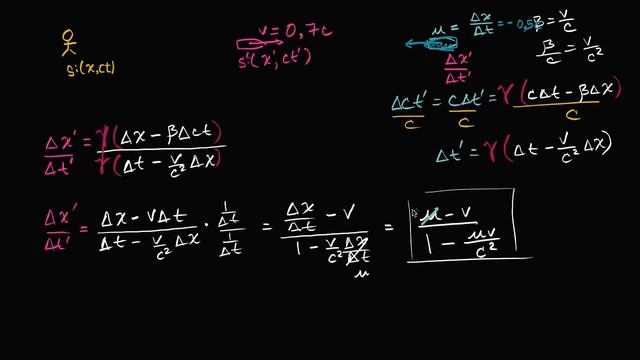 s:(x,ct)
v = 0,7c
s'(x',ct')
u = Δx/Δt = -0,5
Δx'/Δt'
β = v/c
β/c = v/c²
Δct'/c = cΔt'/c = γ(cΔt - βΔx)/c
Δt' = γ(Δt - v/c² Δx)
Δx'/Δt' = γ(Δx - βΔct)/γ(Δt - v/c² Δx)
Δx'/Δt' = (Δx - vΔt)/(Δt - v/c² Δx) · (1/Δt)/(1/Δt) = (Δx/Δt - v)/(1 - v/c² Δx/Δt) = (u - v)/(1 - uv/c²)
u